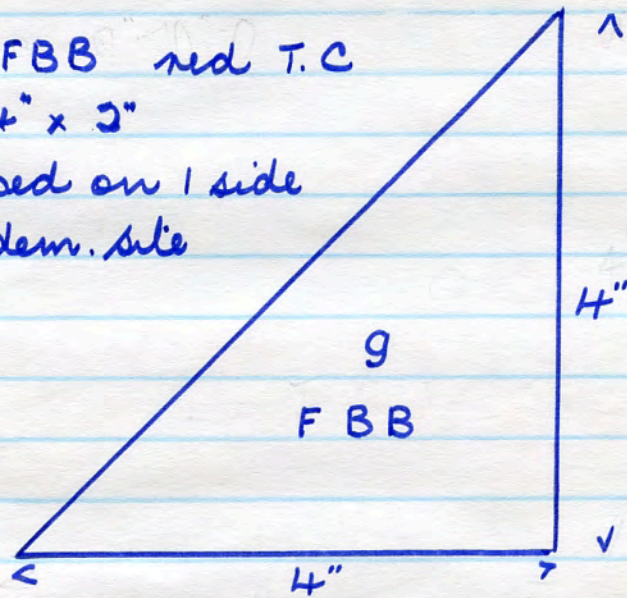 FBB red T.C
4" x 2"
sed on 1 side
dem. site
4"
g
F BB
4"